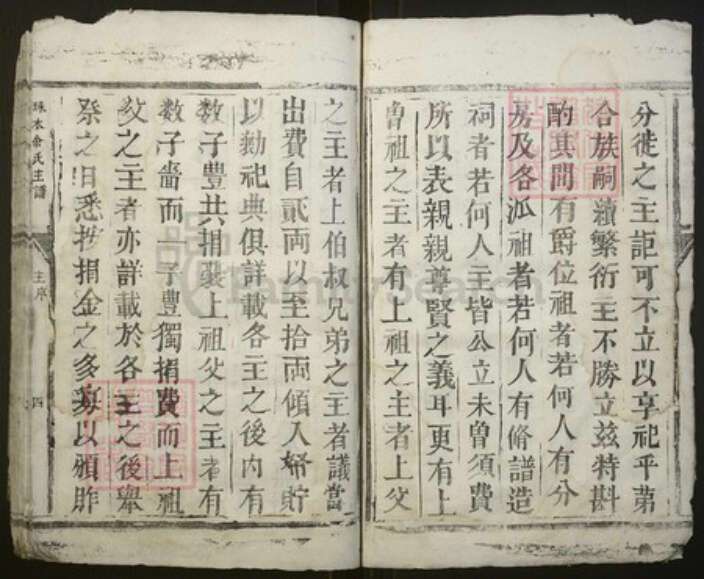 分徙之主詎可不立以享祀乎第
合族嗣續繁衍主不勝立茲特斟
酌其間有爵位祖者若何人有分
房及各派祖者若何人有脩譜造
祠者若何人主皆公立未曾須費
所以表親親尊賢之義耳更有上
曾祖之主者有上祖父之主者上父
之主者上伯叔兄弟之主者議當
出費自貳両以至拾両傾入帑貯
以勷祀典俱詳載各主之後內有
數子豐共捐襄上祖父之主者有
數子嗇而一子豐獨捐費而上祖
父之主者亦詳載於各主之後舉
祭之日悉按捐金之多寡以頒胙
余氏主譜
主序
四
FamilySearch